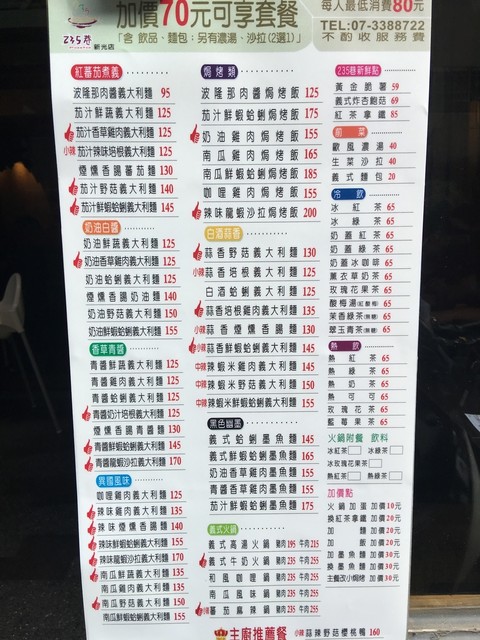 235巷
新光店
加價70元可享套餐
「含 飲品、麵包;另有濃湯、沙拉(2選1)」
每人最低消費80元
TEL:07-3388722
不酌收服務費
紅蕃茄煮義
波隆那肉醬義大利麵 95
茄汁鮮蔬義大利麵 125
茄汁香草雞肉義大利麵 125
小辣 茄汁辣味培根義大利麵 125
煙燻香腸蕃茄麵 130
茄汁野菇義大利麵 140
茄汁鮮蝦蛤蜊義大利麵 145
奶油白醬
奶油鮮蔬義大利麵 125
奶油香草雞肉義大利麵 125
奶油蛤蜊義大利麵 125
煙燻香腸奶油麵 140
奶油野菇義大利麵 150
奶油鮮蝦蛤蜊義大利麵 155
香草青醬
青醬鮮蔬義大利麵 125
青醬雞肉義大利麵 125
青醬蛤蜊義大利麵 125
青醬奶汁培根義大利麵 125
煙燻香腸青醬麵 130
青醬鮮蝦蛤蜊義大利麵 145
青醬龍蝦沙拉義大利麵 170
異國風味
咖哩雞肉義大利麵 125
辣味雞肉義大利麵 135
辣味煙燻香腸麵 140
辣味鮮蝦蛤蜊義大利麵 155
辣味龍蝦沙拉義大利麵 170
南瓜鮮蔬義大利麵 135
南瓜雞肉義大利麵 135
南瓜野菇義大利麵 150
南瓜鮮蝦蛤蜊義大利麵 155
焗烤類
波隆那肉醬焗烤飯 125
茄汁鮮蝦蛤蜊焗烤飯 175
奶油雞肉焗烤飯 155
南瓜雞肉焗烤飯 165
南瓜鮮蝦蛤蜊焗烤飯 185
咖哩雞肉焗烤飯 155
辣味龍蝦沙拉焗烤飯 200
白酒蒜香
蒜香野菇義大利麵 130
小辣 蒜香培根義大利麵 125
白酒蛤蜊義大利麵 125
蒜香培根雞肉義大利麵 135
小辣 蒜香煙燻香腸麵 130
小辣 蒜香鮮蝦蛤蜊義大利麵 145
中辣 辣蝦米雞肉義大利麵 145
中辣 辣蝦米野菇義大利麵 150
中辣 辣蝦米鮮蝦義大利麵 155
黑色幽墨
義式蛤蜊墨魚麵 145
義式鮮蝦蛤蜊墨魚麵 165
奶油香草雞肉墨魚麵 155
青醬香草雞肉墨魚麵 155
青醬鮮蝦蛤蜊墨魚麵 175
義式火鍋
義式高湯火鍋 豬肉195 牛肉215
義式牛奶火鍋 豬肉235 牛肉255
和風咖哩鍋 豬肉235 牛肉255
南瓜風味鍋 豬肉235 牛肉255
小辣 蕃茄麻辣鍋 豬肉235 牛肉255
主廚推薦餐
小辣 蒜辣野菇櫻桃鴨 160
235巷新鮮點
黃金脆薯 59
義式炸杏鮑菇 69
紅茶拿鐵 85
前菜
歐風濃湯 40
生菜沙拉 40
義式麵包 20
冷飲
冰紅茶 65
冰綠茶 65
奶蓋紅茶 65
奶蓋綠茶 65
奶蓋冰咖啡 65
薰衣草奶茶 65
玫瑰花果茶 65
酸梅湯 65
茉香綠茶(無糖) 65
翠玉青茶(無糖) 65
熱飲
熱紅茶 65
熱綠茶 65
熱奶茶 65
熱可可 65
玫瑰花茶 65
藍莓果茶 65
火鍋附餐 飲料
冰紅茶 冰綠茶
冰玫瑰花果茶
熱紅茶 熱綠茶
加價點
火鍋加蛋 加價10元
換紅茶拿鐵 加價20元
加麵 加價20元
加飯 加價20元
加墨魚麵 加價30元
換墨魚麵 加價30元
主餐改小焗烤 加價30元